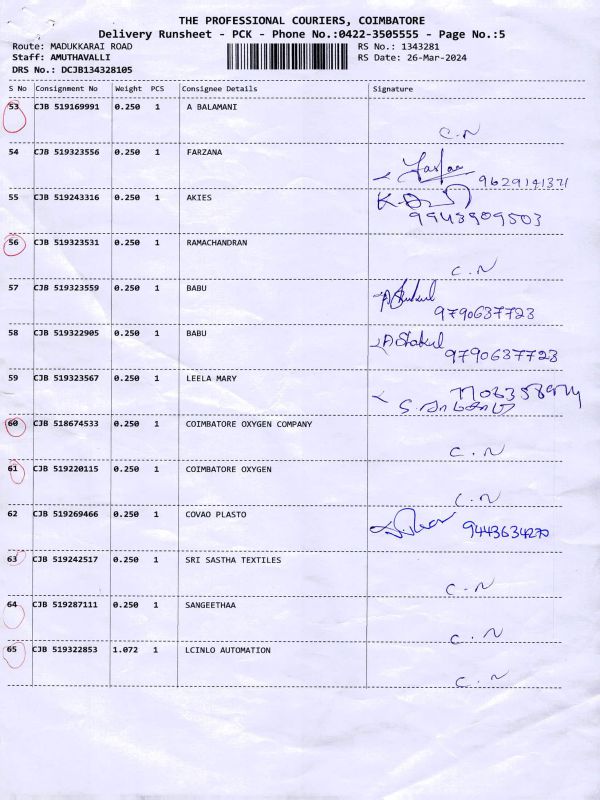 THE PROFESSIONAL COURIERS, COIMBATORE
Delivery Runsheet - PCK - Phone No.:0422-3505555 - Page No.:5
Route: MADUKKARAI ROAD RS No.: 1343281
Staff: AMUTHAVALLI RS Date: 26-Mar-2024
DRS No.: DCJB134328105
S No Consignment No Weight PCS Consignee Details Signature
53 CJB 519169991 0.250 1 A BALAMANI
C.N
54 CJB 519323556 0.250 1 FARZANA
9629141371
55 CJB 519243316 0.250 1 AKIES
9943909503
56 CJB 519323531 0.250 1 RAMACHANDRAN
C.N
57 CJB 519323559 0.250 1 BABU
9790637723
58 CJB 519322905 0.250 1 BABU
9790637723
59 CJB 519323567 0.250 1 LEELA MARY
60 CJB 518674533 0.250 1 COIMBATORE OXYGEN COMPANY
C.N
61 CJB 519220115 0.250 1 COIMBATORE OXYGEN
C.N
62 CJB 519269466 0.250 1 COVAO PLASTO
9443634270
63 CJB 519242517 0.250 1 SRI SASTHA TEXTILES
C.N
64 CJB 519287111 0.250 1 SANGEETHAA
C.N
65 CJB 519322853 1.072 1 LCINLO AUTOMATION
C.N